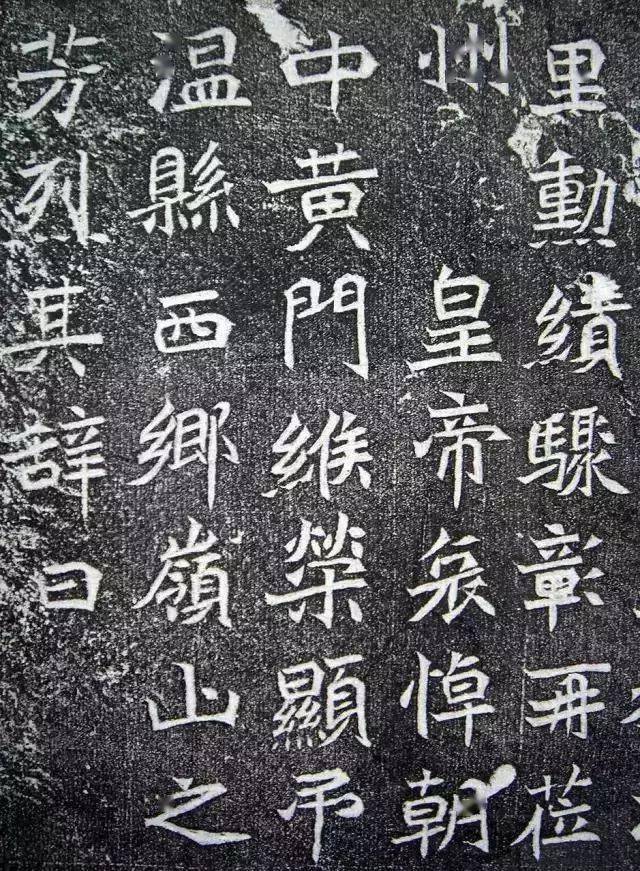 里勳績驟彰再莅
州 皇帝哀悼朝
中黃門緱榮顯弔
温縣西鄉嶺山之
芳烈其辞曰